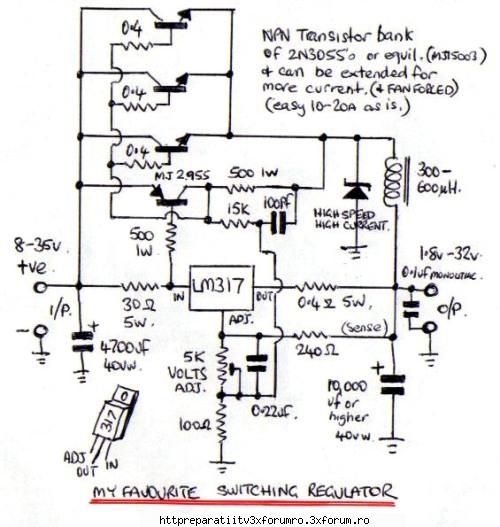 NPN Transistor bank
of 2N3055's or equil. (MJ15003)
& can be extended for
more current. (& FAN FORCED)
(easy 10-20A as is.)
0.4
0.4
0.4
MJ2955
500 1W
15K
100Pf
HIGH SPEED
HIGH CURRENT.
300-
600µH.
500
1W
8-35v.
+ve
I/P.
-
+
4700UF
40VW.
30Ω
5W.
IN
LM317
OUT
ADJ.
0.4Ω 5W.
1.8v-32v.
0.1uf MONOLITHIC
O/P
(sense)
240Ω
5K
VOLTS
ADJ.
0.22UF.
100Ω
+
10,000
uf or
higher
40VW.
317
O
ADJ
OUT
IN
MY FAVOURITE SWITCHING REGULATOR
httpreparatiitv3xforumro.3xforum.ro